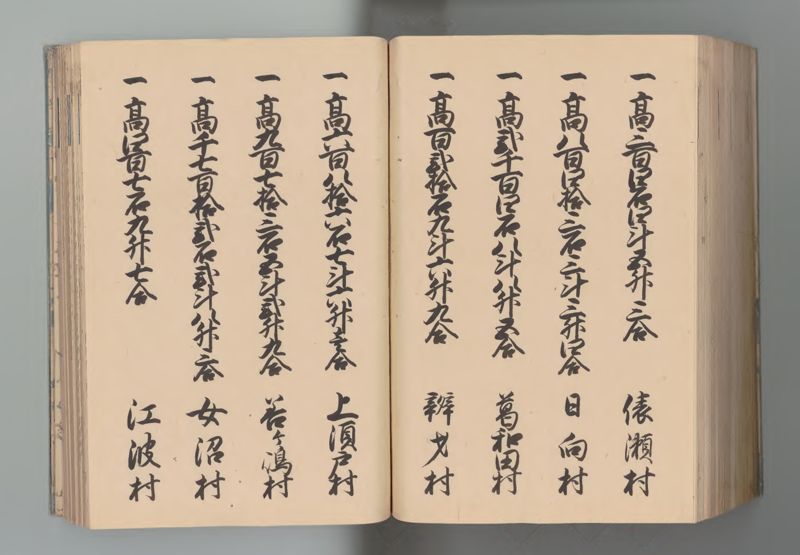 一 高三百四石四斗五升三合 俵瀬村
一 高八百四拾三石三斗三升四合 日向村
一 高弐千百四石八斗八升五合 葛和田村
一 高百弐拾石九斗六升九合 辨才村
一 高六百八拾六石七斗六升壱合 上須戸村
一 高九百七拾三石五斗弐升九合 善ヶ嶋村
一 高千七百拾弐石弐斗八升三合 女沼村
一 高四百七石九升七合 江波村